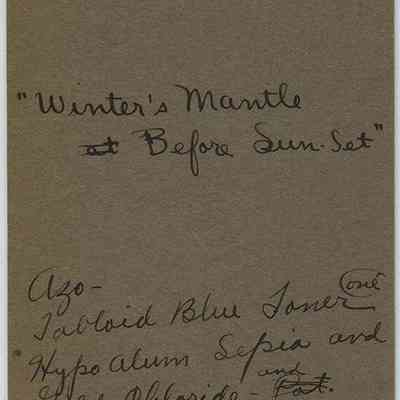 "Winter's Mantle
at Before Sun-Set"
Azo-
Tabloid Blue Toner
Hypo Alum Sepia and
and
Chloride - Pot.